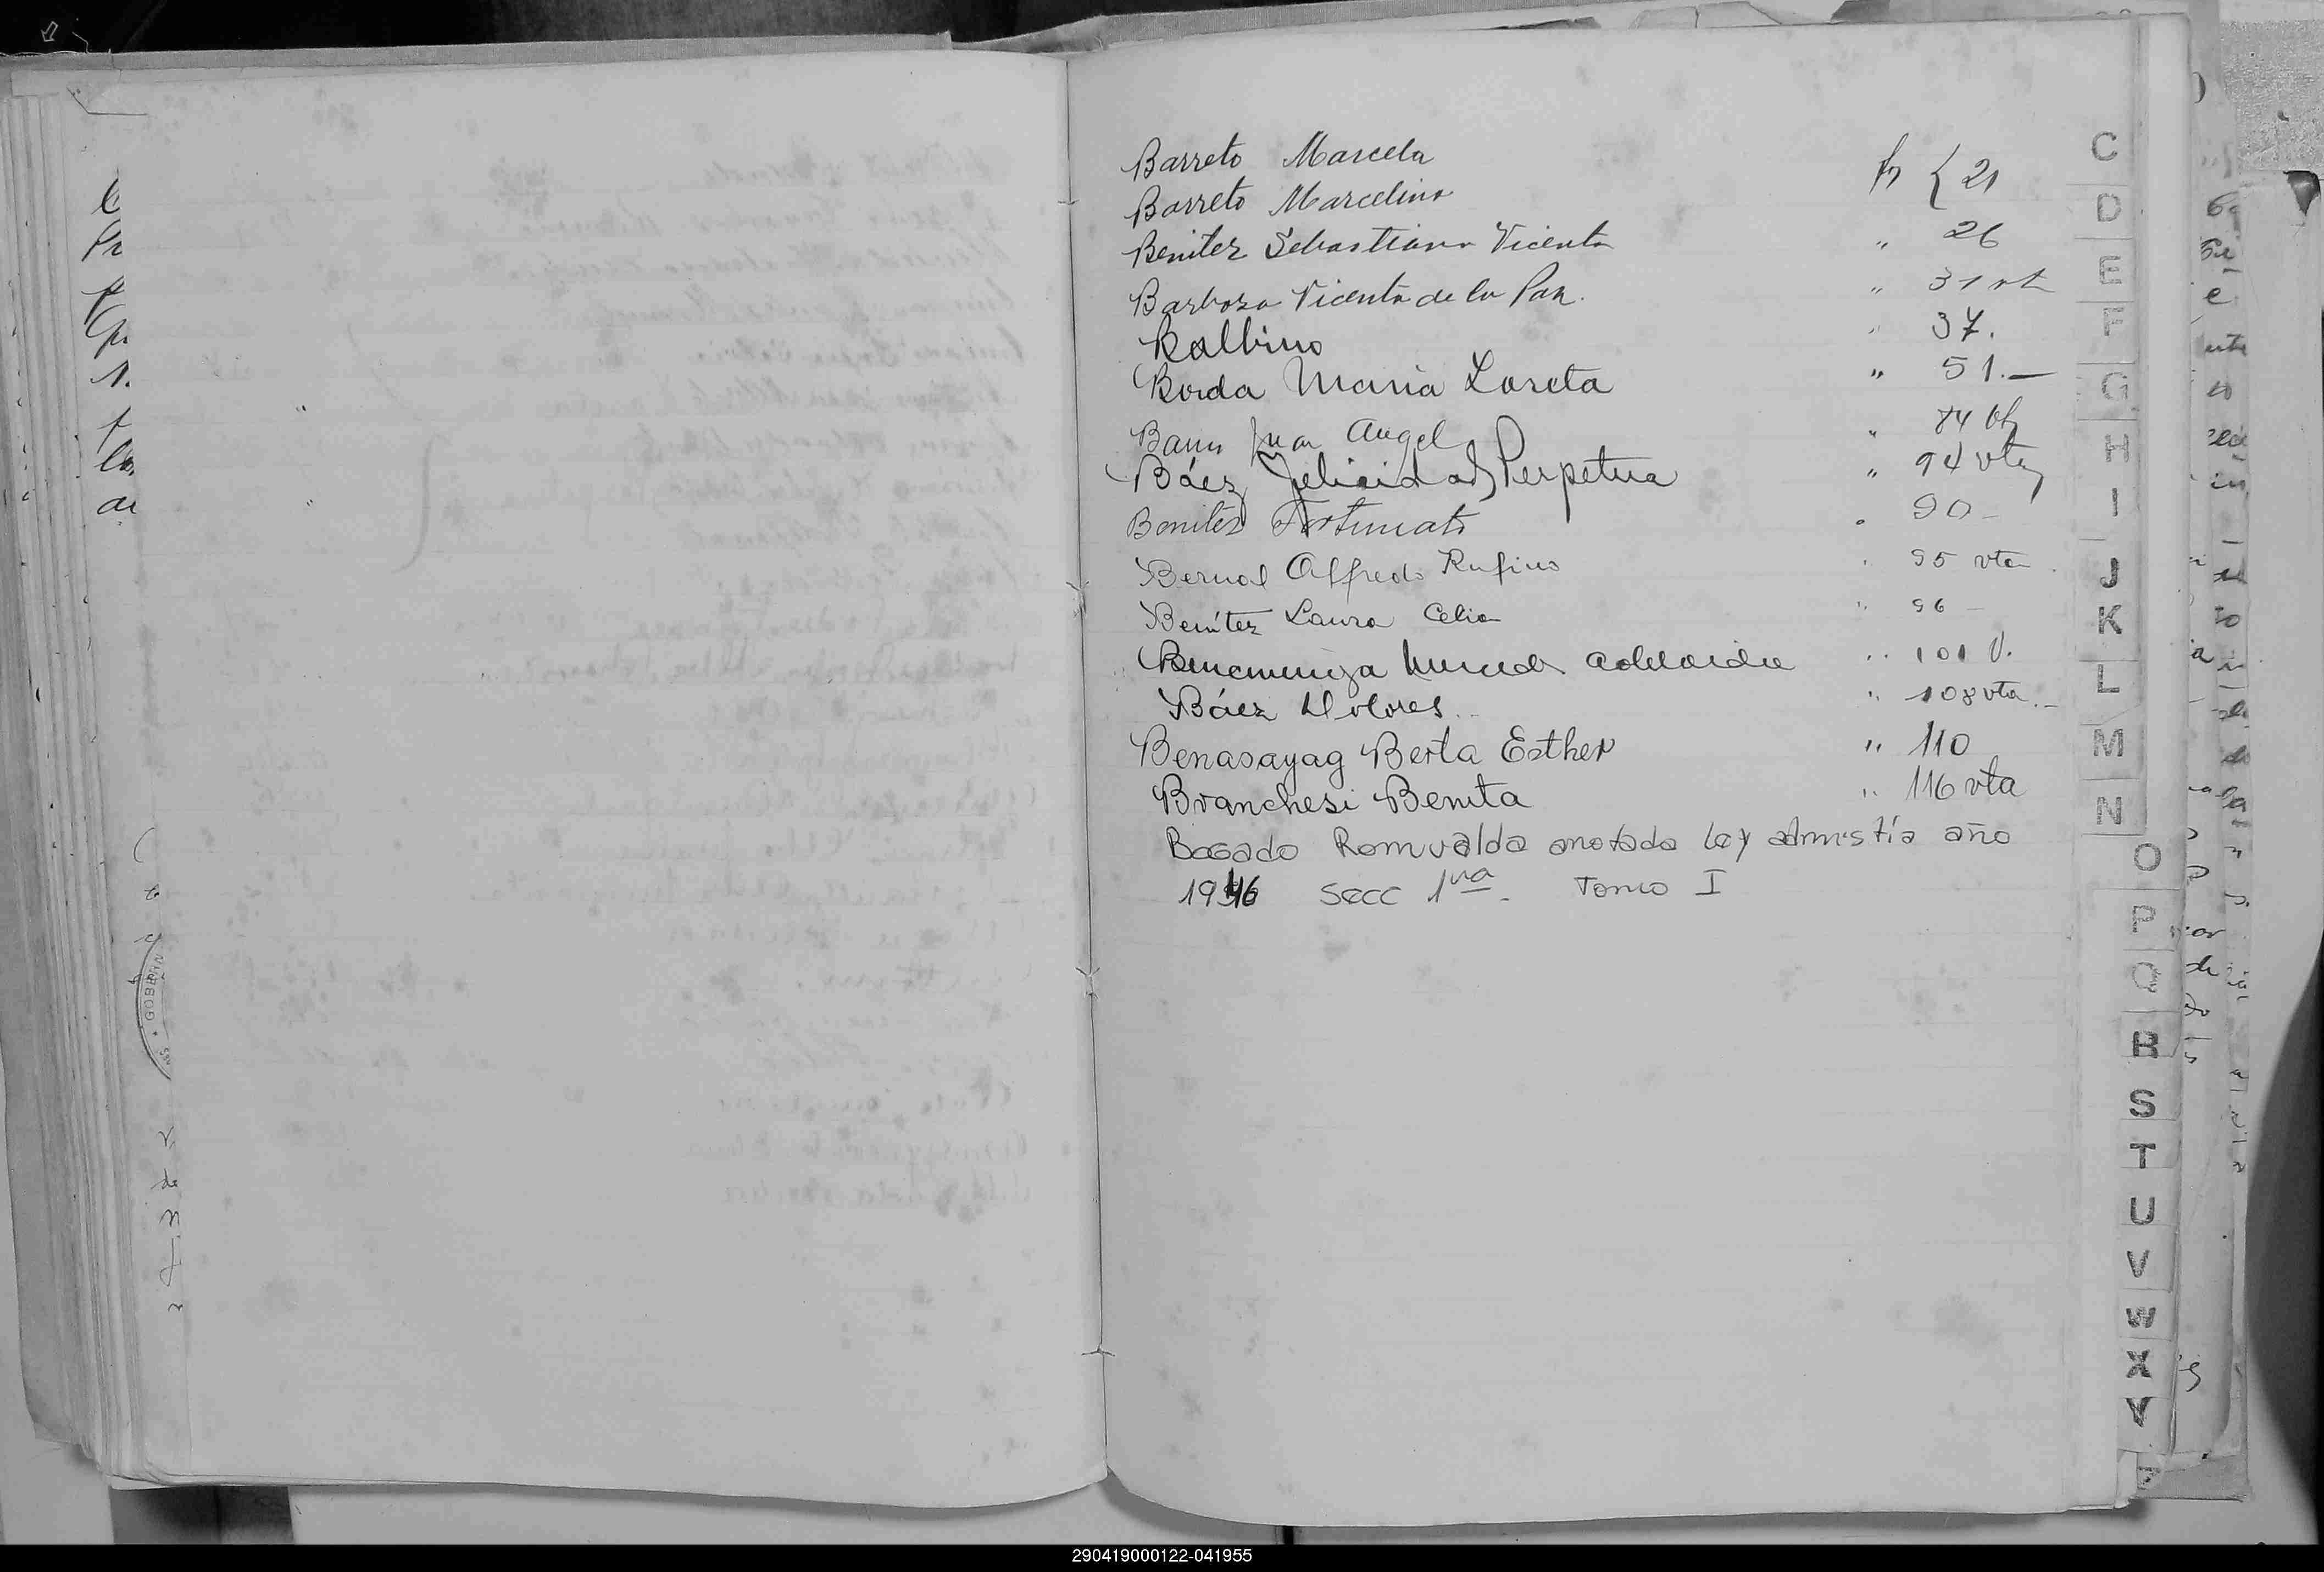 Barreto Marcela
Barreto Marcelino fo { 21
Benitez Sebastiana Vicenta " 26
Barboza Vicenta de la Paz. " 31 vt
Balbino " 37.
Borda Maria Loreta " 51.—
Juan Angel " 84 vt
Báez Felicidad Perpetua " 94 vta
Benitez Fortunato " 90 -
Bernal Alfredo Rufino " 95 vta
Benítez Laura Celia " 96 -
Adelaida " 101 V.
Báez Dolores " 108 vta.-
Benasayag Berta Esther " 110
Branchesi Benita " 116 vta
Bogado Romualda anotada ley admistía año
1946 Secc 1ra. Tomo I
C
D
E
F
G
H
I
J
K
L
M
N
O
P
Q
R
S
T
U
V
W
X
Y
Z
290419000122-041955